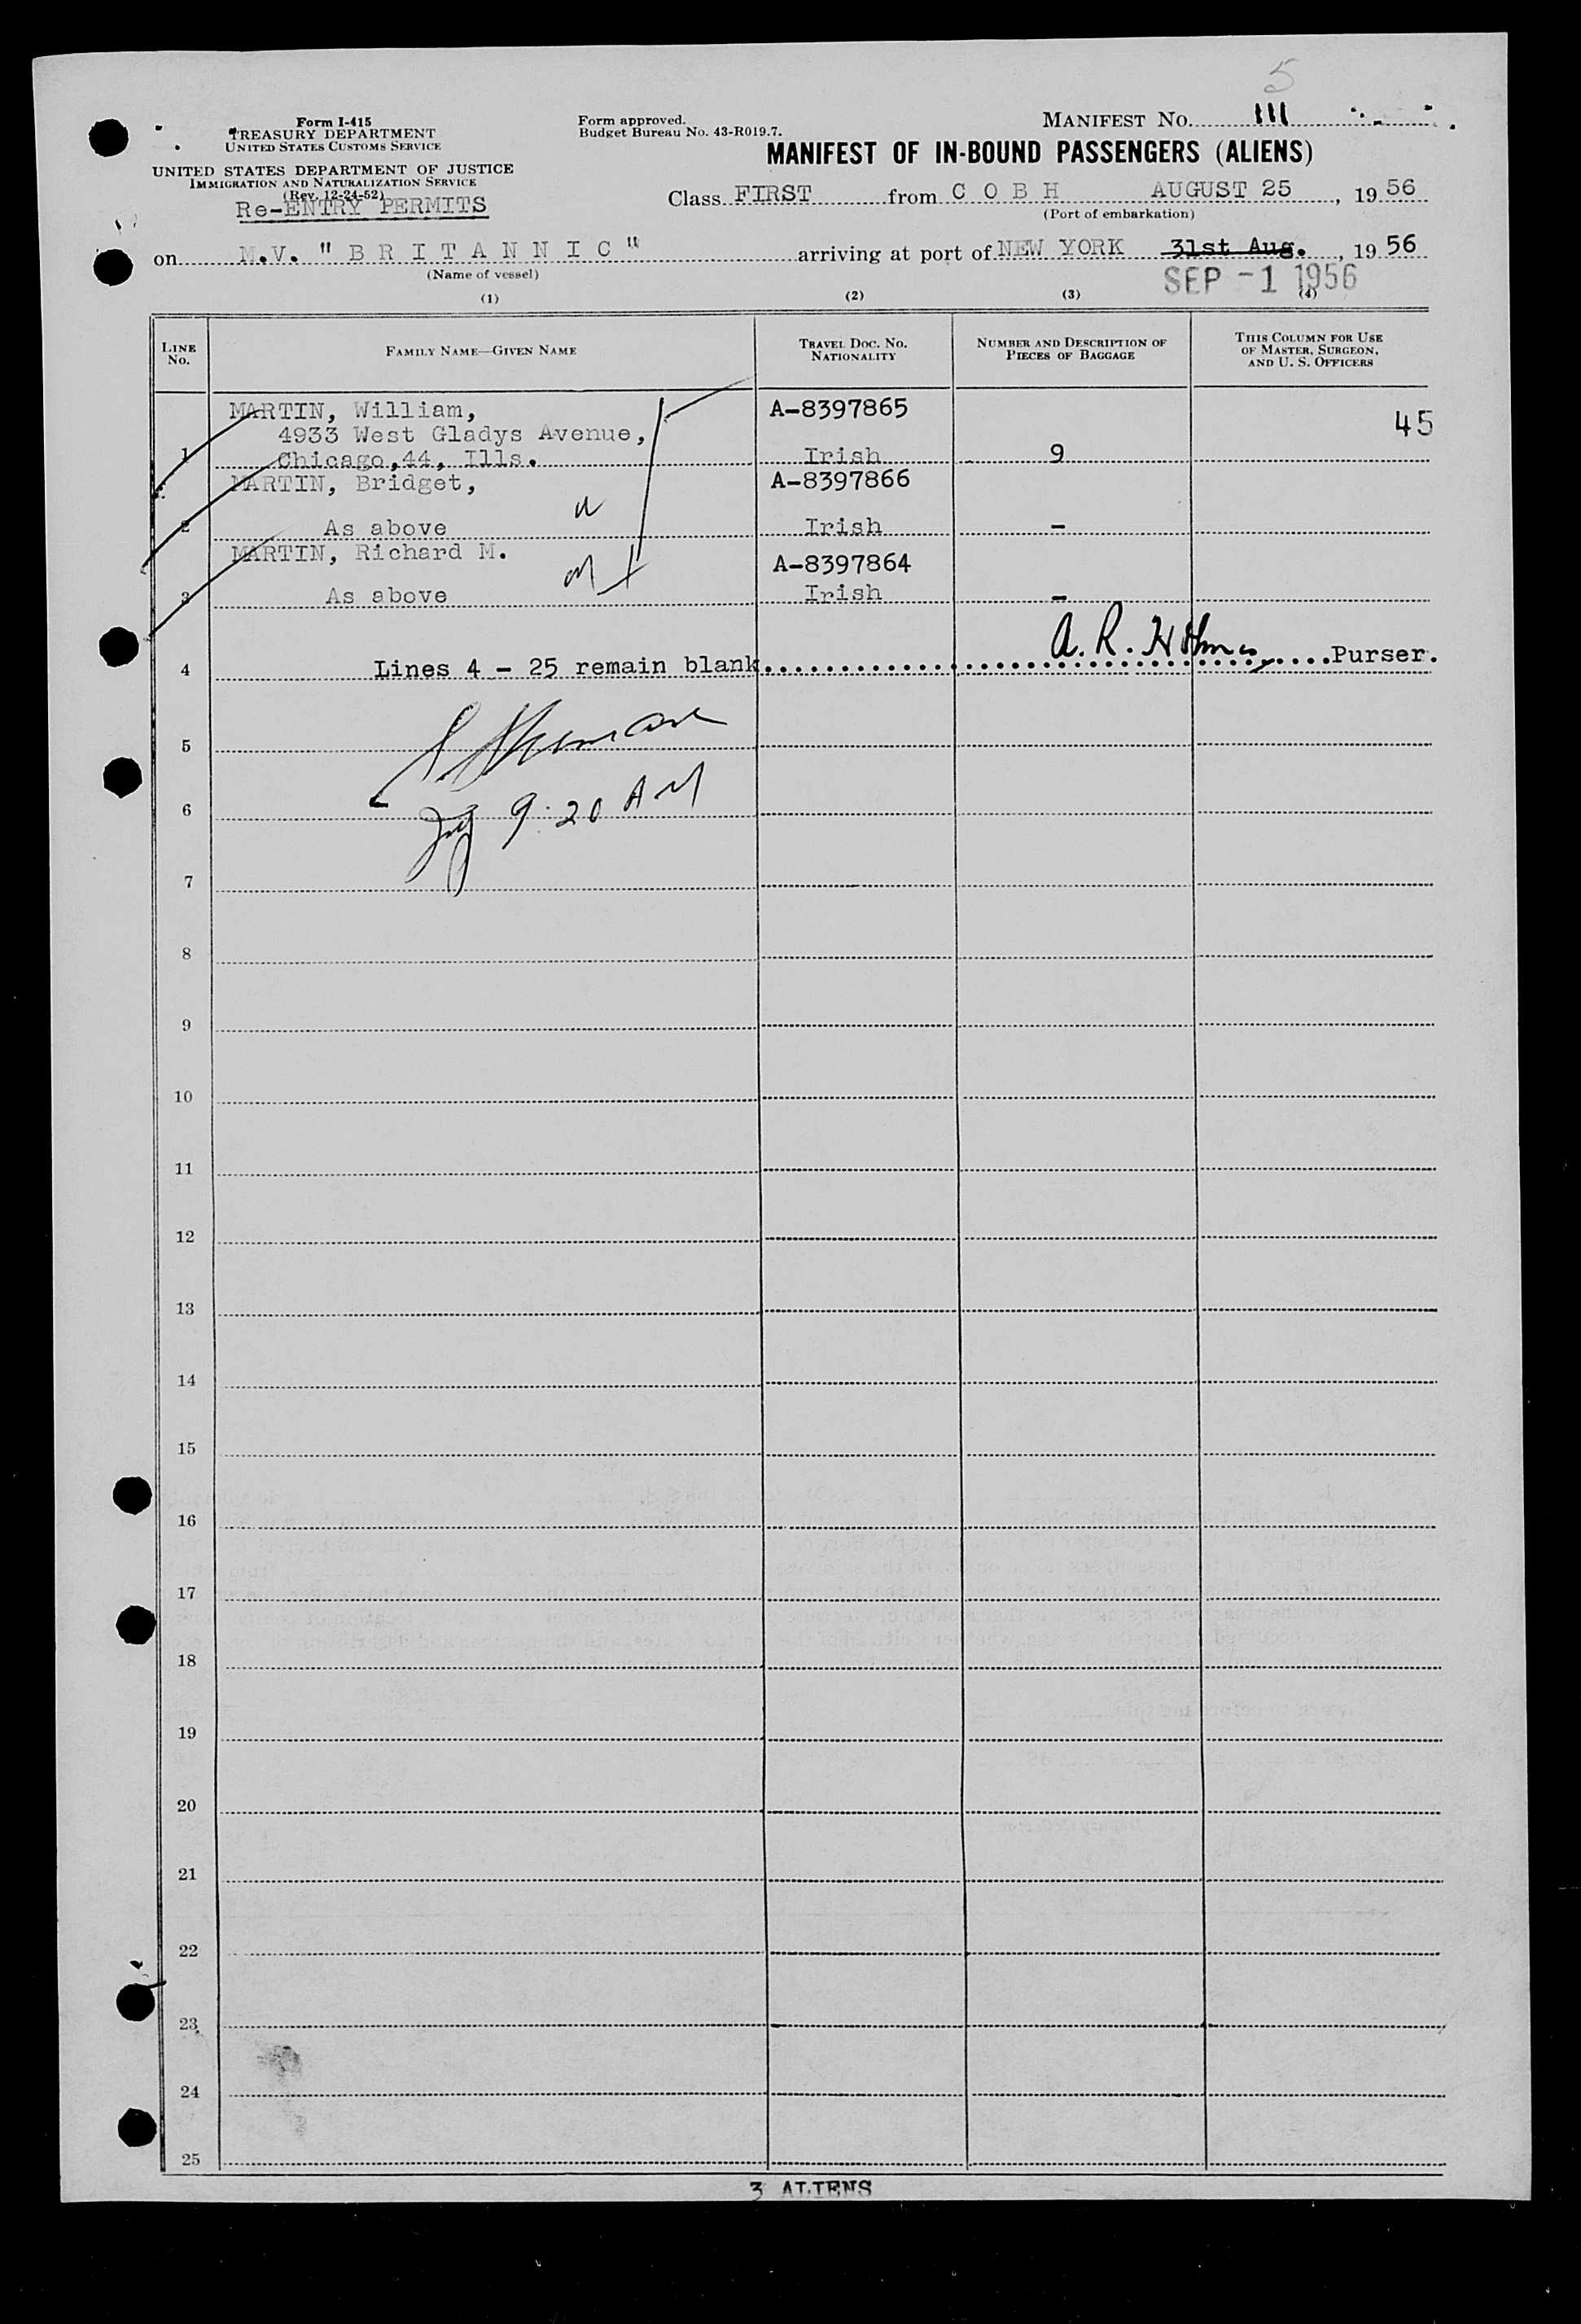 5
Form I-415
TREASURY DEPARTMENT
UNITED STATES CUSTOMS SERVICE
UNITED STATES DEPARTMENT OF JUSTICE
IMMIGRATION AND NATURALIZATION SERVICE
(Rev. 12-24-52)
Re-ENTRY PERMITS
Form approved.
Budget Bureau No. 43-R019.7.
MANIFEST No. 111
MANIFEST OF IN-BOUND PASSENGERS (ALIENS)
Class FIRST from C O B H AUGUST 25, 19 56
(Port of embarkation)
on M.V. "B R I T A N N I C" arriving at port of NEW YORK 31st Aug., 19 56
(Name of vessel)
SEP -1 1956
(1) (2) (3) (4)
LINE No. FAMILY NAME—GIVEN NAME TRAVEL DOC. NO. NATIONALITY NUMBER AND DESCRIPTION OF PIECES OF BAGGAGE THIS COLUMN FOR USE OF MASTER, SURGEON, AND U. S. OFFICERS
MARTIN, William, A-8397865 45
4933 West Gladys Avenue,
1 Chicago,44, Ills. Irish 9
MARTIN, Bridget, A-8397866
2 As above Irish -
MARTIN, Richard M. A-8397864
3 As above Irish -
4 Lines 4 - 25 remain blank A. R. Purser.
5
6 9:20 AM
7
8
9
10
11
12
13
14
15
16
17
18
19
20
21
22
23
24
25
3 ALIENS